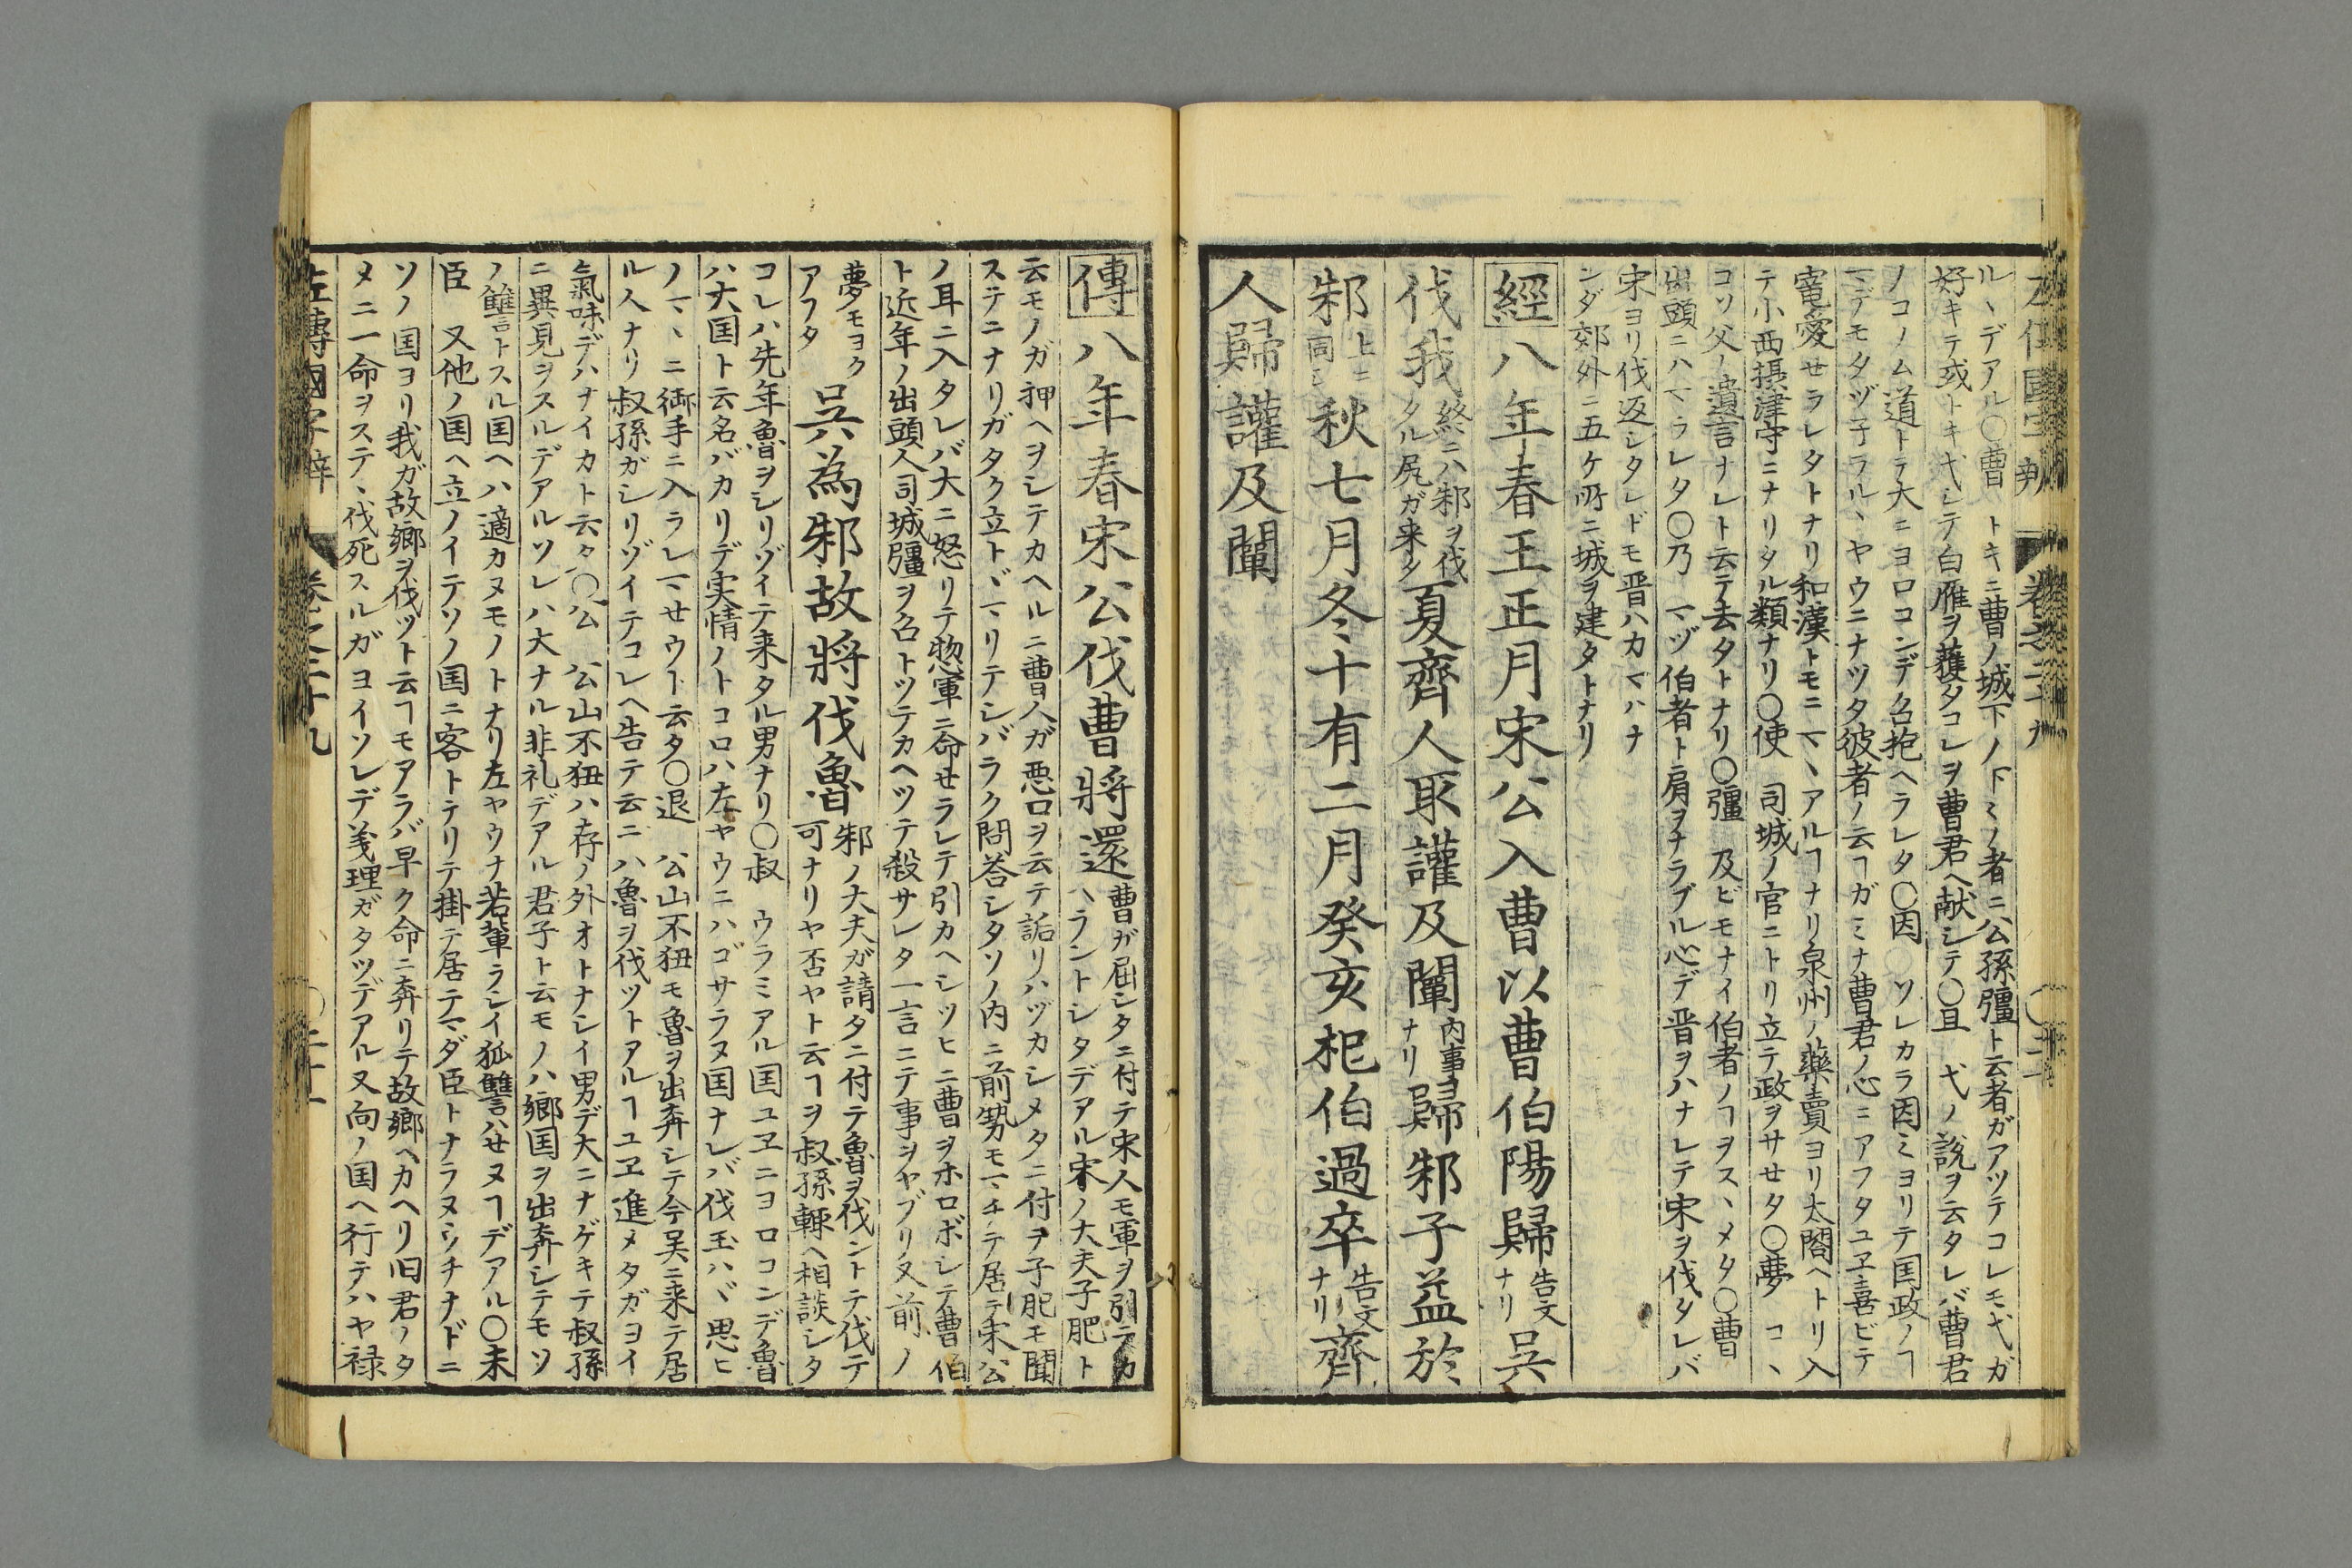 ルヽデアル〇曹　トキニ曹ノ城下ノ下ミノ者ニ公孫彊ト云者ガアツテコレモ弋ガ
好キテ或トキ弋シテ白雁ヲ獲タコレヲ曹君ヘ献シテ〇且　弋ノ説ヲ云タレバ曹君
ノコノム道トテ大ニヨロコンデ召抱ヘラレタ〇因　ソレカラ因ミヨリテ国政ノヿ
マデモタヅ子ラルヽヤウニナツタ彼者ノ云ヿガミナ曹君ノ心ニアフタユヱ喜ビテ
寵愛セラレタトナリ和漢トモニマヽアルヿナリ泉州ノ藥賣ヨリ太閤ヘトリ入
テ小西摂津守ニナリタル類ナリ〇使　司城ノ官ニトリ立テ政ヲサセタ〇夢　コヽ
コソ父ノ遺言ナレト云テ去タトナリ〇彊　及ビモナイ伯者ノヿヲスヽメタ〇曹
出頭ニハマラレタ〇乃　マヅ伯者ト肩ヲナラブル心デ晋ヲハナレテ宋ヲ伐タレバ
宋ヨリ伐返シタレドモ晋ハカマハナ
ンダ郊外ニ五ケ所ニ城ヲ建タトナリ
經八年春王正月宋公入曹以曹伯陽歸告文ナリ吳
伐我終ニハ邾ヲ伐タル尻ガ来タ夏齊人取讙及闡内事ナリ歸邾子益於
邾上ニ同シ秋七月冬十有二月癸亥杞伯過卒告文ナリ齊
人歸讙及闡
傳八年春宋公伐曹將還曹ガ屈シタニ付テ宋人モ軍ヲ引テカヘラントシタデアル宋ノ大夫子肥ト
云モノガ押ヘヲシテカヘルニ曹人ガ悪口ヲ云テ詬リハヅカシメタニ付ヲ子肥モ聞
ステニナリガタク立トヾマリテシバラク問答シタソノ内ニ前勢モマチテ居テ宋公
ノ耳ニ入タレバ大ニ怒リテ惣軍ニ命セラレテ引カヘシツヒニ曹ヲホロボシテ曹伯
ト近年ノ出頭人司城彊ヲ召トツテカヘツテ殺サレタ一言ニテ事ヲヤブリ又前ノ
夢モヨクアフタ吳為邾故將伐魯邾ノ大夫ガ請タニ付テ魯ヲ伐ントテ伐テ可ナリヤ否ヤト云ヿヲ叔孫輒ヘ相談シタ
コレハ先年魯ヲシリゾイテ来タル男ナリ〇叔　ウラミアル国ユヱニヨロコンデ魯
ハ大国ト云名バカリデ実情ノトコロハ左ヤウニハゴサラヌ国ナレバ伐玉ハヾ思ヒ
ノマヽニ御手ニ入ラレマセウト云タ〇退　公山不狃モ魯ヲ出奔シテ今吴ニ来テ居
ル人ナリ叔孫ガシリゾイテコレヘ告テ云ニハ魯ヲ伐ツトアルヿユヱ進メタガヨイ
氣味デハナイカト云々〇公　公山不狃ハ存ノ外オトナシイ男デ大ニナゲキテ叔孫
ニ異見ヲスルデアルソレハ大ナル非礼デアル君子ト云モノハ郷国ヲ出奔シテモソ
ノ讎トスル国ヘハ適カヌモノトナリ左ヤウナ若輩ラシイ狐讐ハセヌヿデアル〇未
臣　又他ノ国ヘ立ノイテソノ国ニ客トテリテ掛テ居テマダ臣トナラヌウチナドニ
ソノ国ヨリ我ガ故郷ヲ伐ツト云ヿモアラバ早ク命ニ奔リテ故郷ヘカヘリ旧君ノタ
メニ一命ヲステヽ伐死スルガヨイソレデ義理ガタツデアル又向ノ国ヘ行テハヤ禄
左傳國字辯　卷之二十九